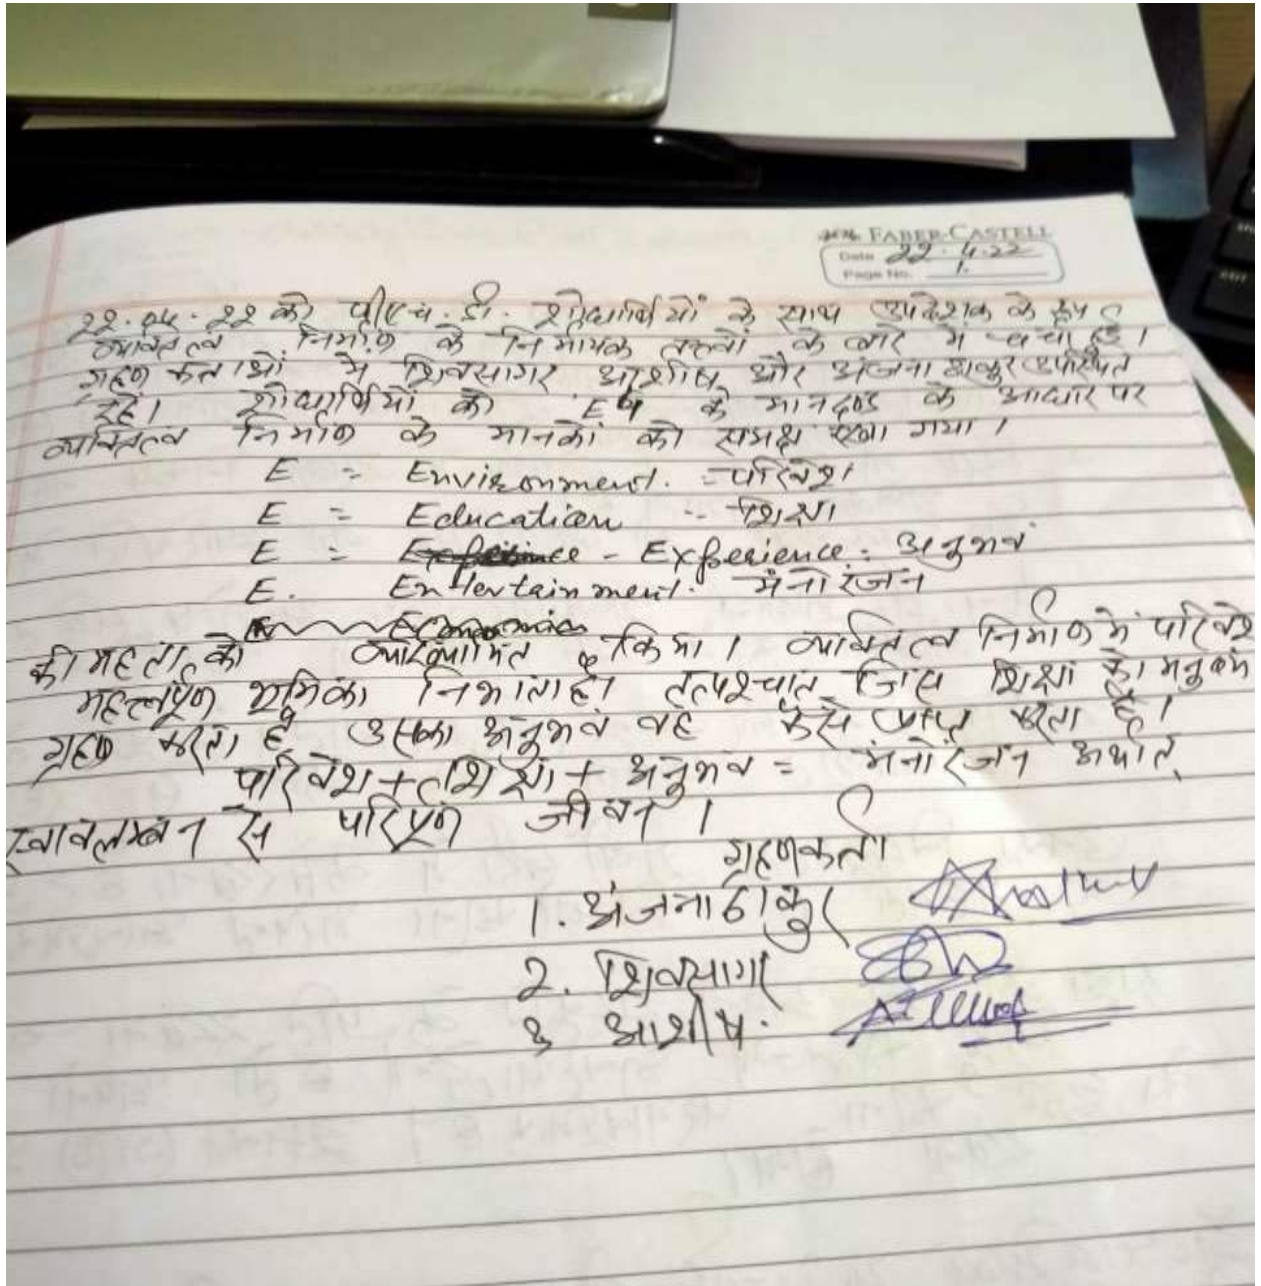 FABER-CASTELL
Date 22.4.22
Page No. 1.
22.04.22 को पीएच.डी. शोधार्थियों के साथ उपदेशक के रूप में
व्यक्तित्व निर्माण के निर्मायक तत्त्वों के बारे में चर्चा हुई।
ग्रहण कर्ताओं में शिवसागर आशीष और अंजना ठाकुर उपस्थित
रहें। शोधार्थियों को E4 के मानदण्ड के आधार पर
व्यक्तित्व निर्माण के मानकों को समक्ष रखा गया।
E = Environment. = परिवेश
E = Education - शिक्षा
E = - Experience = अनुभव
E. Entertainment. मनोरंजन
की महत्ता को व्याख्यायित किया। व्यक्तित्व निर्माण में परिवेश
महत्त्वपूर्ण भूमिका निभाता है। तत्पश्चात् जिस शिक्षा को मनुष्य
ग्रहण करता है उसका अनुभव वह कैसे प्राप्त करता है।
परिवेश + शिक्षा + अनुभव = मनोरंजन अर्थात्
स्वावलम्बन से परिपूर्ण जीवन।
ग्रहणकर्ता
1. अंजना ठाकुर
2. शिवसागर
3 आशीष.